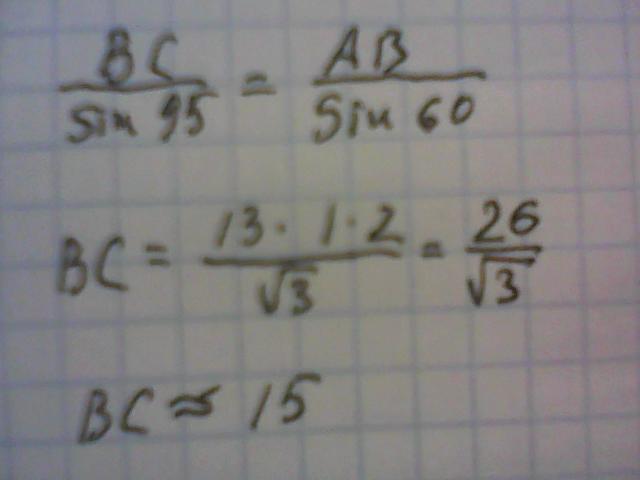 BC / sin 95 = AB / sin 60
BC = 13 · 1 · 2 / √3 = 26 / √3
BC ≈ 15